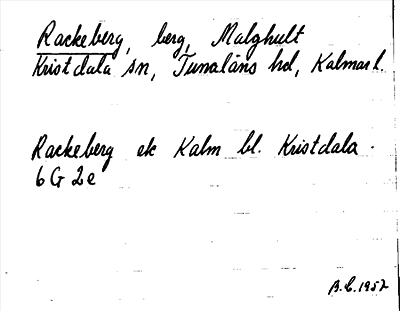 Rackeberg, berg, Malghult
Kristdala sn, Tunaläns hd, Kalmar l.
Rackeberg ek Kalm bl. Kristdala.
6 G 2 e
B.E. 1957